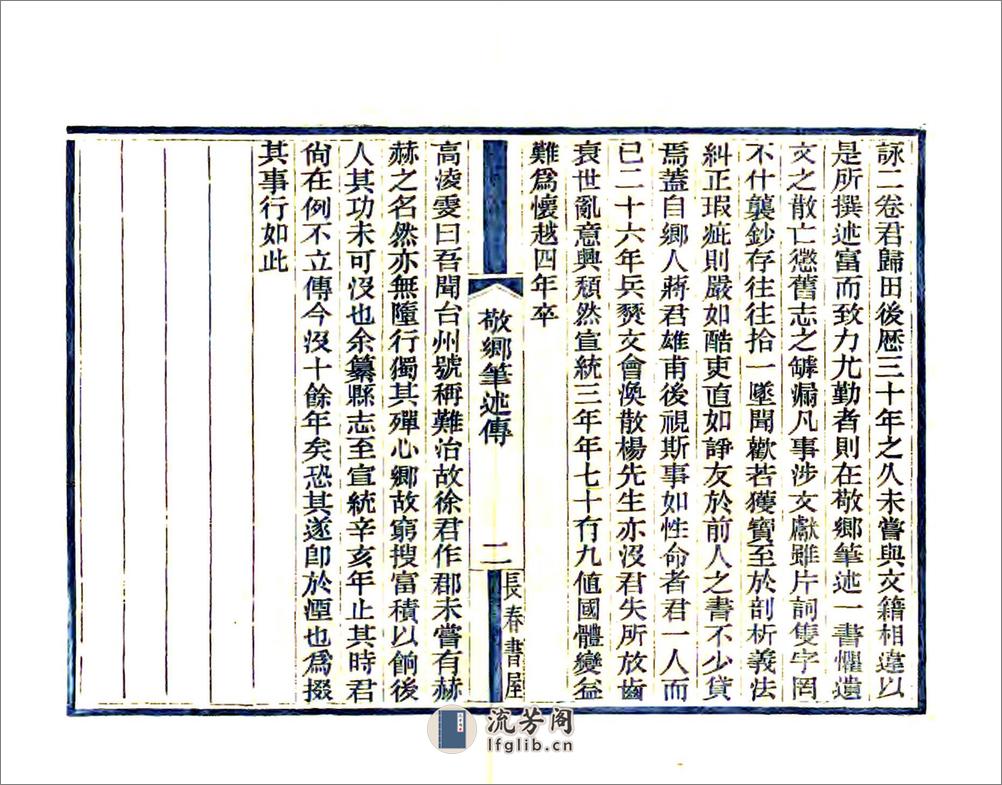 詠二卷君歸田後歷三十年之久未嘗與文籍相違以
是所撰述富而致力尤勤者則在敬鄉筆述一書懼遺
文之散亡懲舊志之罅漏凡事涉文獻雖片詞隻字罔
不什襲鈔存往往拾一墜聞歡若獲寶至於剖析義法
糾正瑕疵則嚴如酷吏直如諍友於前人之書不少貸
焉蓋自鄉人蔣君雄甫後視斯事如性命者君一人而
已二十六年兵燹文會渙散楊先生亦沒君失所放齒
衰世亂意興頹然宣統三年年七十有九値國體變益
難爲懷越四年卒
敬鄉筆述傳
二
長春書屋
高淩雯曰吾聞台州號稱難治故徐君作郡未嘗有赫
赫之名然亦無隳行獨其殫心鄉故窮搜富積以餉後
人其功未可沒也余纂縣志至宣統辛亥年止其時君
尙在例不立傳今沒十餘年矣恐其遂卽於湮也爲掇
其事行如此
流芳阁
lfglib.cn